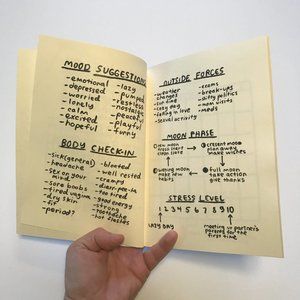 MOOD SUGGESTIONS
-emotional
-depressed
-worried
-lonely
-calm
-excited
-hopeful
-lazy
-pumped
-restless
-nostalgic
-peaceful
-playful
-funny
BODY CHECK-IN
-sick (general)
-headache
-sex on your
mind
-sore boobs
-tired vagina
-dry skin
-fit
-period?
-bloated
-well rested
-cramps
-diarr-pee-ta
-too tired
-good energy
-strong
-toothache
-hot flashes
OUTSIDE FORCES
-weather
changes
-fun time
-lazy day
-falling in love
-sexual activity
-exams
-break-ups
-meds
MOON PHASE
new moon
make wishes
waning moon
make new
habits
full moon
take action
give thanks
STRESS LEVEL
1 2 3 4 5 6 7 8 9 10
LAZY DAY
meeting ur partner's
parents for the
first time